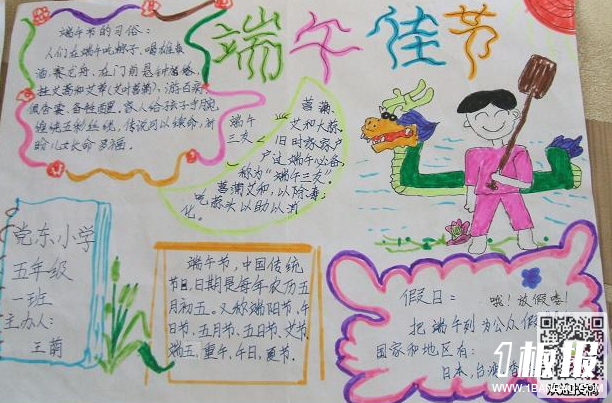 端午佳节
端午节的习俗：
人们在端午吃粽子、喝雄黄
酒、赛龙舟、在门前悬钟馗像、
挂艾蒿和艾草
佩香囊、备牲醴、家人给孩子手腕
缠绕五彩丝线，传说可以续命，祈
盼儿女长命多福。
端午
三友
菖蒲、
艾和大蒜，
旧时家家户
户过端午必备，
称为“端午三友”。
菖蒲艾和，以除毒；
吃蒜头以助以消
化。
党东小学
五年级
一班
主办人：
王萌
端午节，中国传统
节日，日期是每年农历五
月初五。又称端阳节、午
日节、五月节、五日节、艾节、
端五，重午，午日，夏节。
假日：
哦！放假喽！
把端午列为公众假
国家和地区有：
日本，台湾
WWW.1BANBAO.COM
欢迎投稿